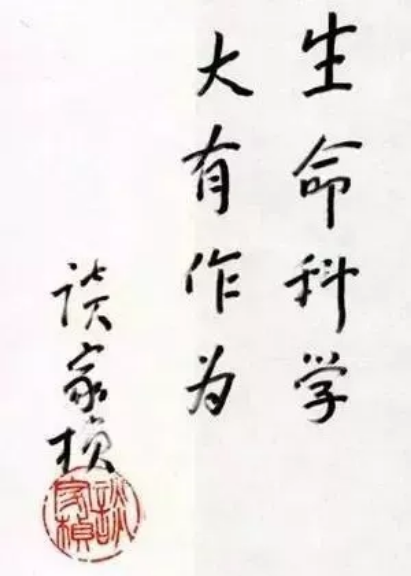 生命科学
大有作为
谈家桢
談家楨